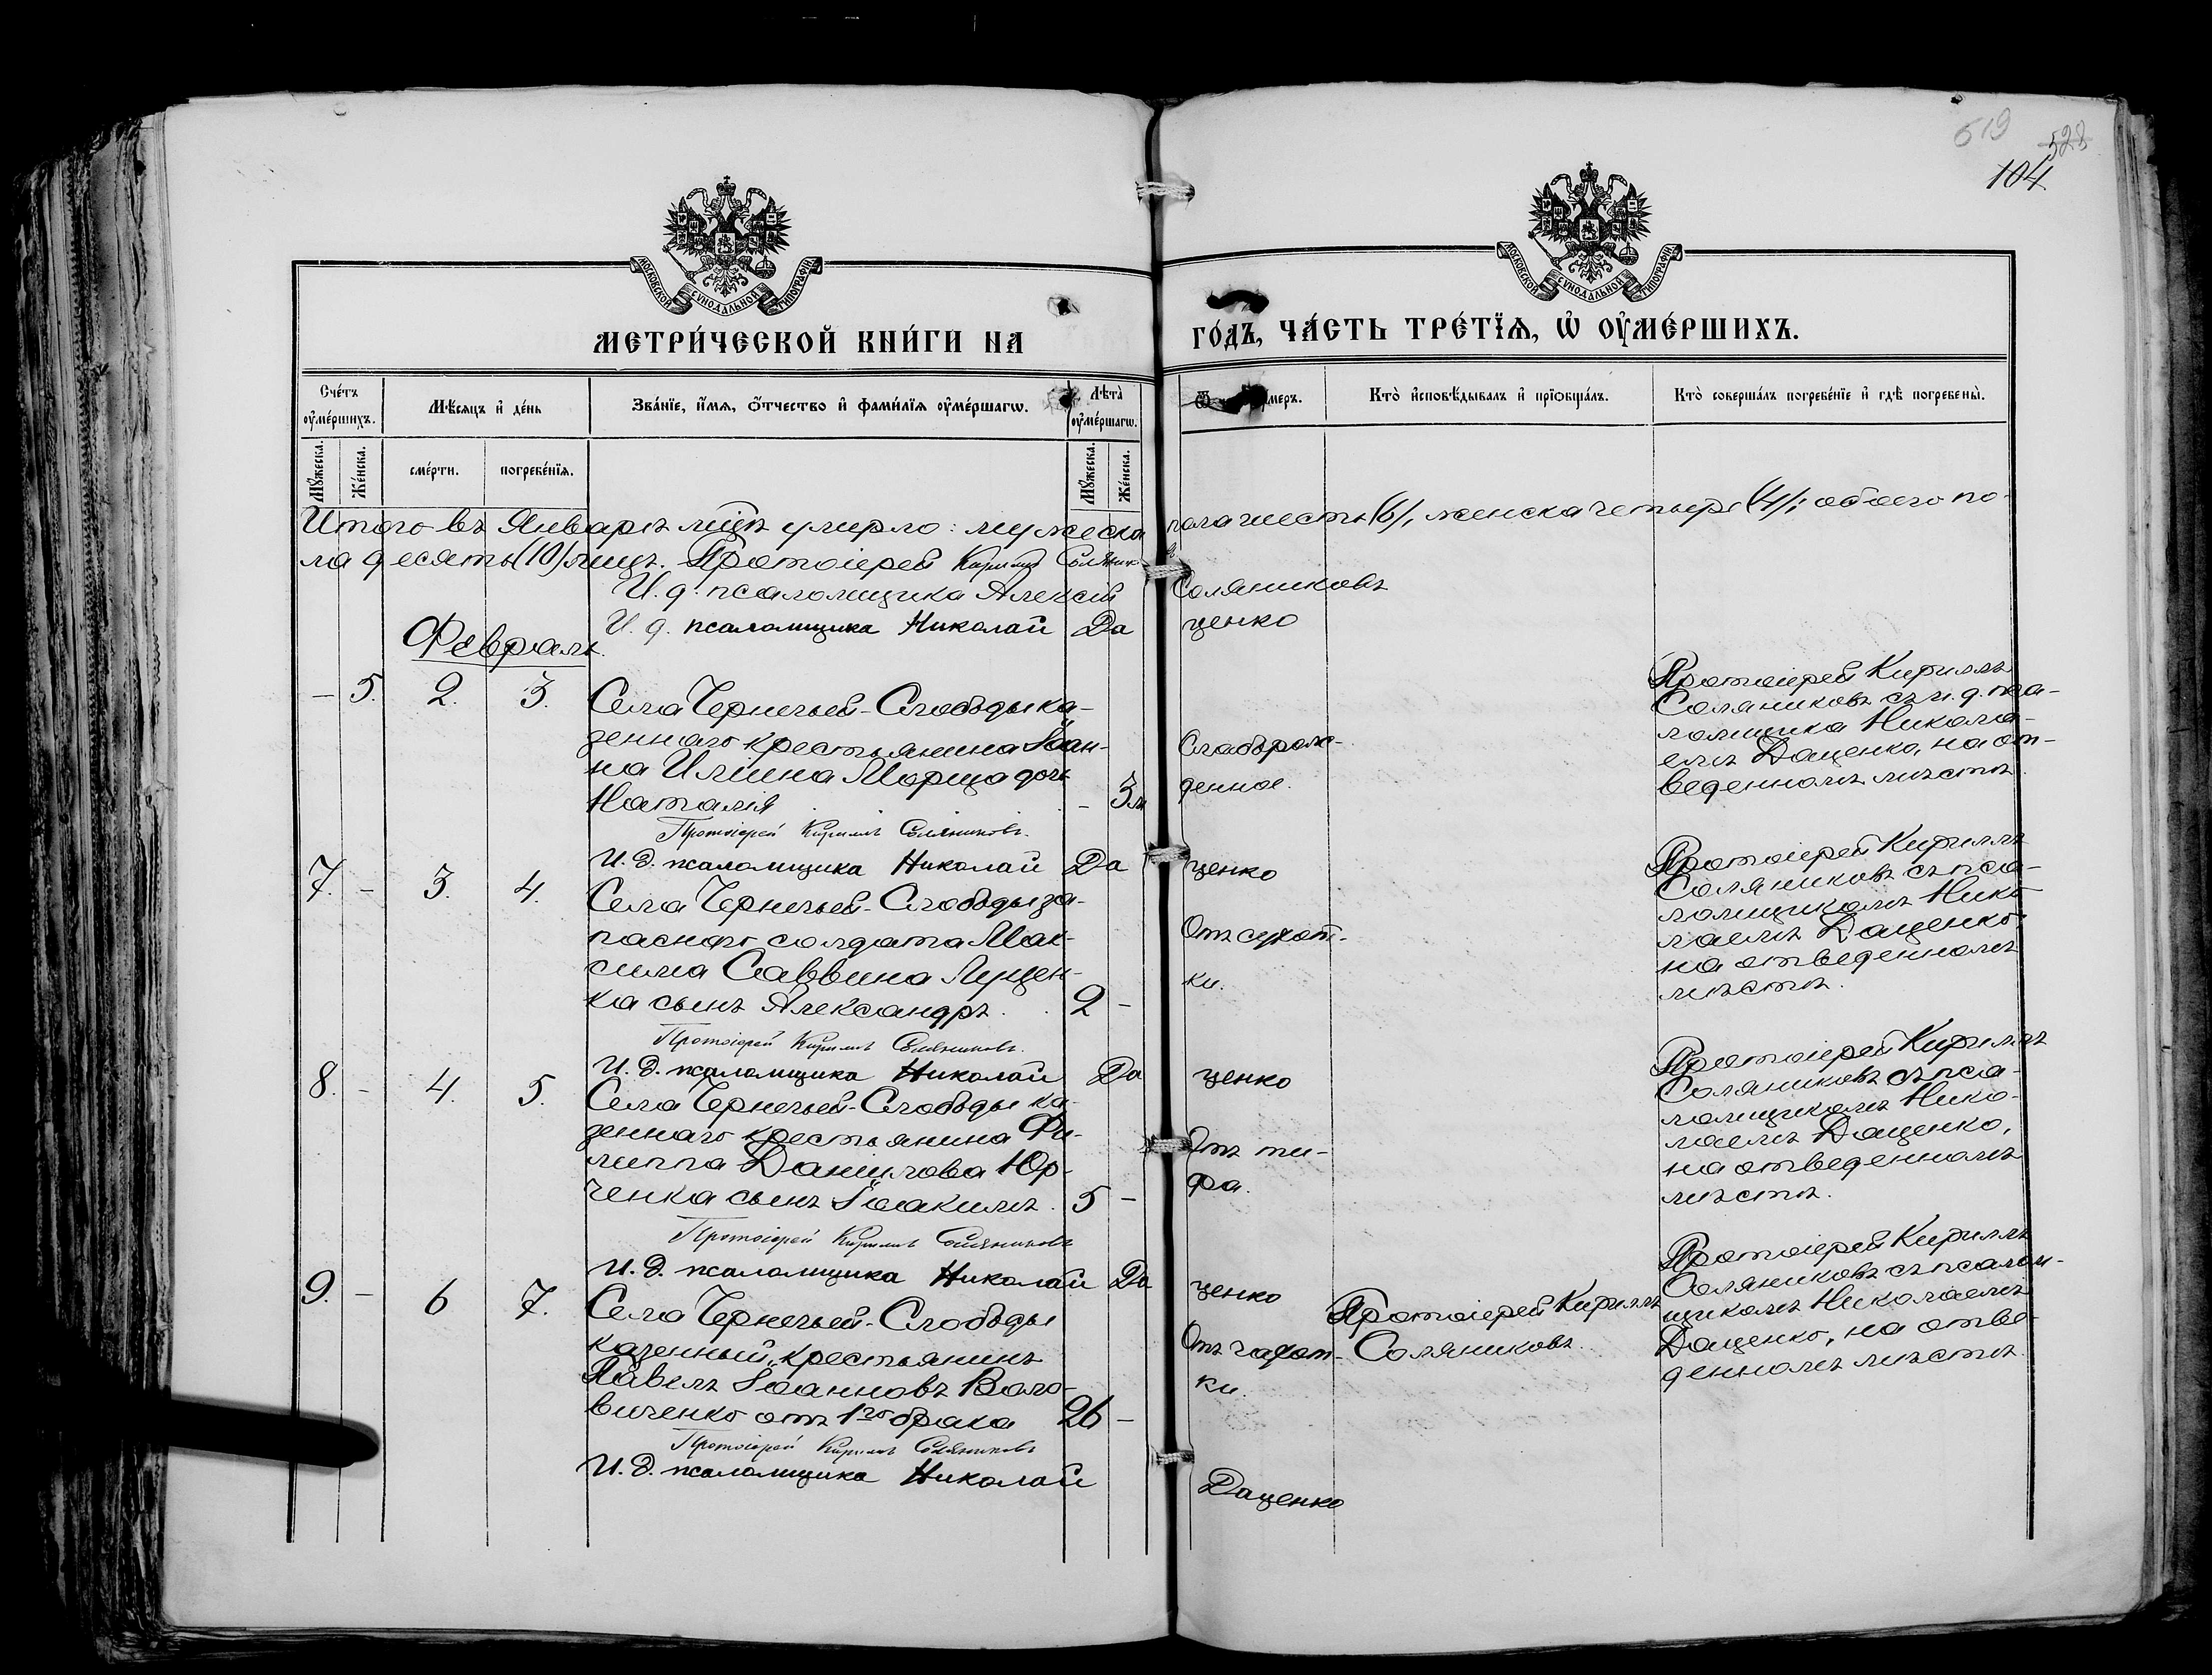 519
528
104
МОСКОВСКОЙ СѴНОДАЛЬНОЙ ТИПОГРАФІИ
МОСКОВСКОЙ СѴНОДАЛЬНОЙ ТИПОГРАФІИ
МЕТРИ́ЧЕСКОЙ КНИ́ГИ НА
ГО́ДЪ, ЧА́СТЬ ТРЕ́ТЇѦ, Ѡ҆ ОУ҆МЕ́РШИХЪ.
Сче́тъ оу҆ме́ршихъ.
Мѣ́сяцъ и҆ де́нь
Зва́нїе, и҆́мѧ, ѻ҆́тчество и҆ фами́лїѧ оу҆ме́ршагѡ.
Лѣ́та оу҆ме́ршагѡ.
Кто̀ и҆сповѣ́дывалъ и҆ прїѡбща́лъ.
Кто̀ соверша́лъ погребе́нїе и҆ гдѣ̀ погребены̀.
Мꙋ́жеска.
Же́нска.
сме́рти.
погребе́нїѧ.
Мꙋ́жеска.
Же́нска.
Итого въ Январѣ мцѣ умерло: мужеска пола шесть (6), женска четыре (4); обоего по-
ла десять (10) лицъ. Протоіерей Кириллъ Соляников
И. д. псаломщика Алексій Соляниковъ
И. д. псаломщика Николай Даценко
Февраль.
- 5. 2. 3.
Села Чернечьей-Слободы ка-
зеннаго крестьянина Іоан-
на Ильина Морща дочь
Наталія - 3 м
Слаборож-
денное.
Протоіерей Кириллъ
Соляниковъ съ и. д. пса-
ломщика Никола-
емъ Даценко, на от-
веденномъ мѣстѣ.
Протоіерей Кириллъ Соляниковъ.
И. д. псаломщика Николай Даценко
7. - 3. 4.
Села Чернечьей-Слободы за-
паснаго солдата Мак-
сима Саввина Луцен-
ка сынъ Александръ. 2 -
Отъ сухот-
ки.
Протоіерей Кириллъ
Соляниковъ съ пса-
ломщикомъ Нико-
лаемъ Даценко,
на отведенномъ
мѣстѣ.
Протоіерей Кириллъ Соляниковъ.
И. д. псаломщика Николай Даценко
8. - 4. 5.
Села Чернечьей-Слободы ка-
зеннаго крестьянина Фи-
липпа Даніилова Юр-
ченка сынъ Іоакимъ. 5 -
Отъ ти-
фа.
Протоіерей Кириллъ
Соляниковъ съ пса-
ломщикомъ Нико-
лаемъ Даценко,
на отведенномъ
мѣстѣ.
Протоіерей Кириллъ Соляниковъ
И. д. псаломщика Николай Даценко
9. - 6 7.
Села Чернечьей-Слободы
казенный крестьянинъ
Павелъ Іоанновъ Воло-
виченко отъ 1го брака 26 -
Отъ чахот-
ки.
Протоіерей Кириллъ
Соляниковъ.
Протоіерей Кириллъ
Соляниковъ съ псалом-
щикомъ Николаемъ
Даценко, на отве-
денномъ мѣстѣ.
Протоіерей Кириллъ Соляниковъ
И. д. псаломщика Николай Даценко